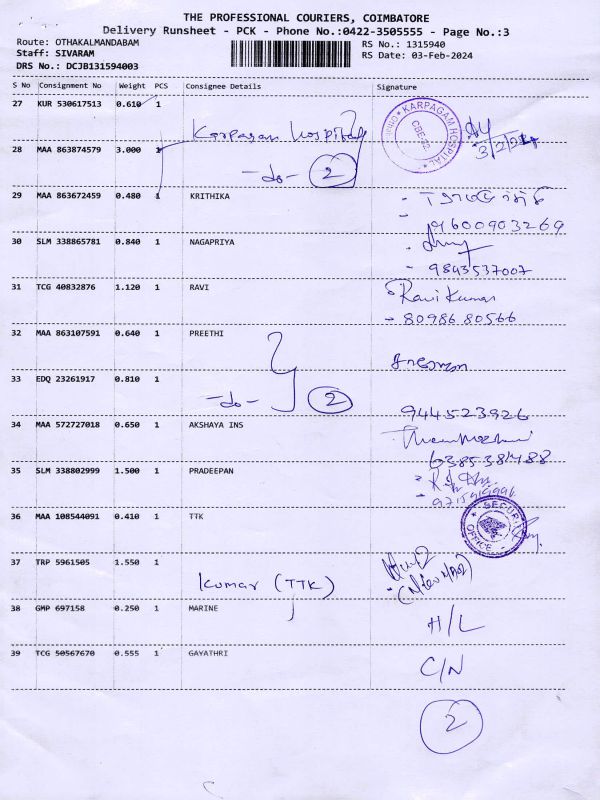 THE PROFESSIONAL COURIERS, COIMBATORE
Delivery Runsheet - PCK - Phone No.:0422-3505555 - Page No.:3
Route: OTHAKALMANDABAM
Staff: SIVARAM
DRS No.: DCJB131594003
RS No.: 1315940
RS Date: 03-Feb-2024
S No Consignment No Weight PCS Consignee Details Signature
27 KUR 530617513 0.610 1 Karpagam Hospital
KARPAGAM HOSPITAL
CBE-32
3/2/24
28 MAA 863874579 3.000 1 -do- 2
29 MAA 863672459 0.480 1 KRITHIKA
9600903269
30 SLM 338865781 0.840 1 NAGAPRIYA
- 9843537007
31 TCG 40832876 1.120 1 RAVI Ravi Kumar
- 80986 80566
32 MAA 863107591 0.640 1 PREETHI
33 EDQ 23261917 0.810 1 -do- 2
944523926
34 MAA 572727018 0.650 1 AKSHAYA INS
6385381488
35 SLM 338802999 1.500 1 PRADEEPAN
36 MAA 108544091 0.410 1 TTK
SECURITY OFFICE
37 TRP 5961505 1.550 1 Kumar (TTK)
38 GMP 697158 0.250 1 MARINE H/L
39 TCG 50567670 0.555 1 GAYATHRI C/N
2